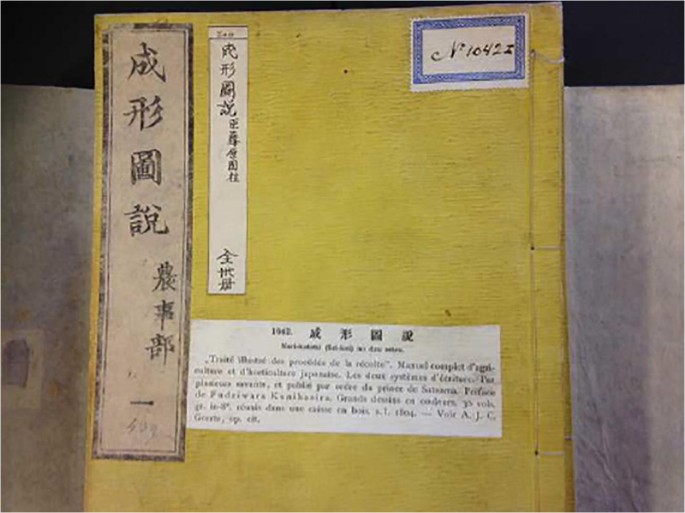 成形圖說
農事部
一
成形圖說
臣藤原国柱
全卅册
Nº 1042
1042. 成形圖說
„Traité illustré des procédés de la récolte". Manuel complet d'agri-
culture et d'horticulture japonaise. Les deux systèmes d'écriture. Par
plusieurs savants, et publié par ordre du prince de Satsuma. Préface
de Fudziwara Kunihasira. Grands dessins en couleurs. 30 vols.
gr. in-8°. réunis dans une caisse en bois. s. l. 1804. — Voir A. J. C.
Geerts, op. cit.